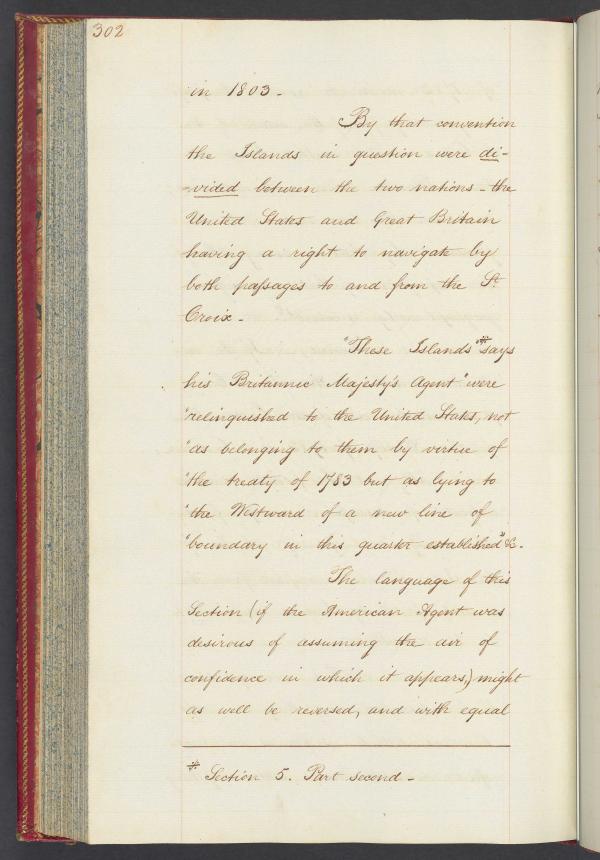 302
in 1803 -
By that convention
the Islands in question were di-
-vided between the two nations - the
United States and Great Britain
having a right to navigate by
both passages to and from the St
Croix -
"These Islands"* says
his Britannic Majesty's Agent "were
"relinquished to the United States, not
"as belonging to them by virtue of
"the treaty of 1783 but as lying to
"the Westward of a new line of
"boundary in this quarter established" &c.
The language of this
Section (if the American Agent was
desirous of assuming the air of
confidence in which it appears,) might
as well be reversed, and with equal
* Section 5. Part second -